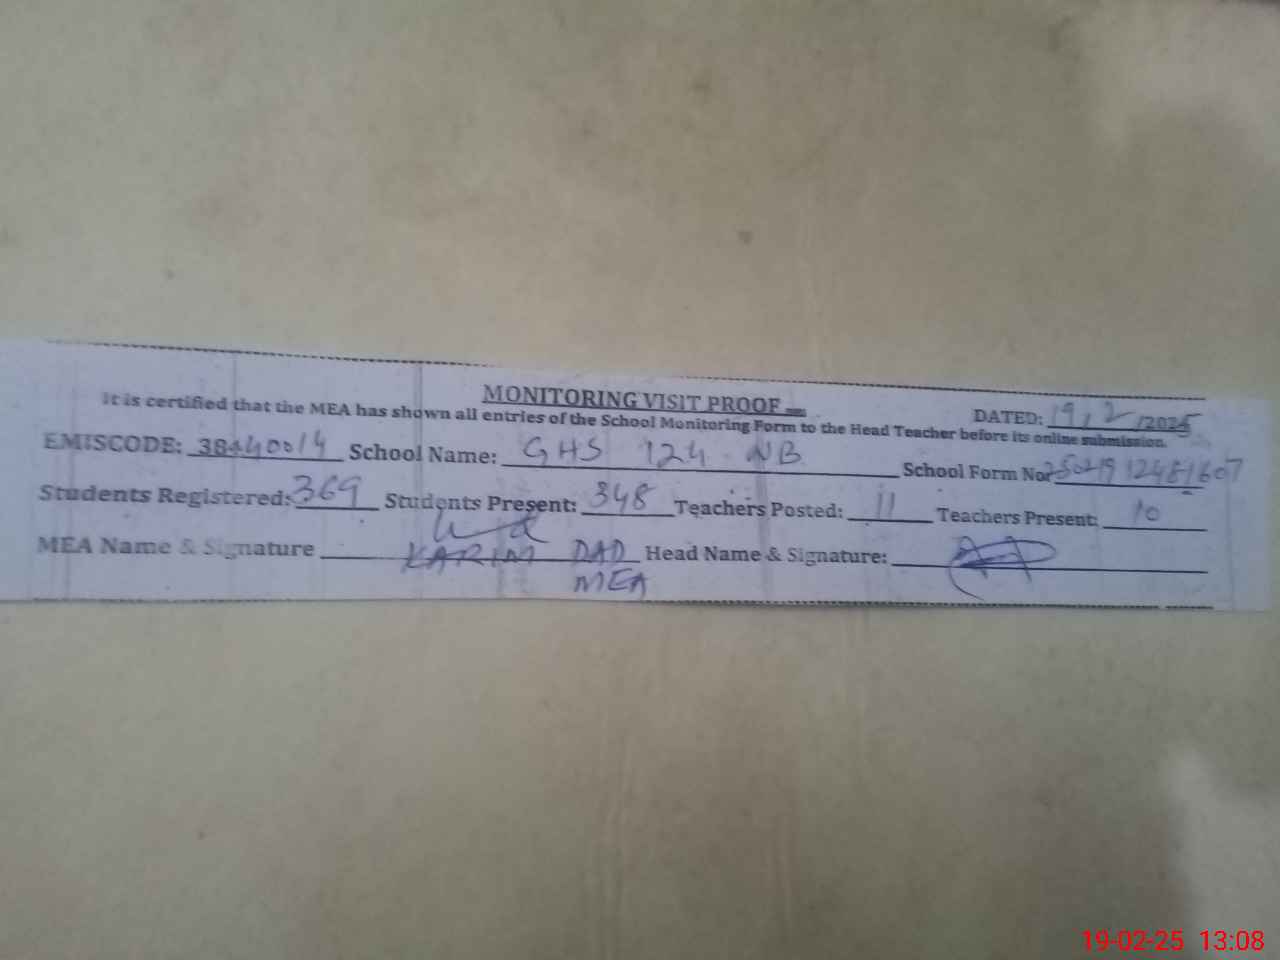 MONITORING VISIT PROOF
DATED: 19/2/2025
It is certified that the MEA has shown all entries of the School Monitoring Form to the Head Teacher before its online submission.
EMISCODE: 38440014 School Name: GHS 124 NB School Form No:
Students Registered: 369 Students Present: 348 Teachers Posted: 11 Teachers Present: 10
MEA Name & Signature KARIM DAD Head Name & Signature:
MEA
19-02-25 13:08